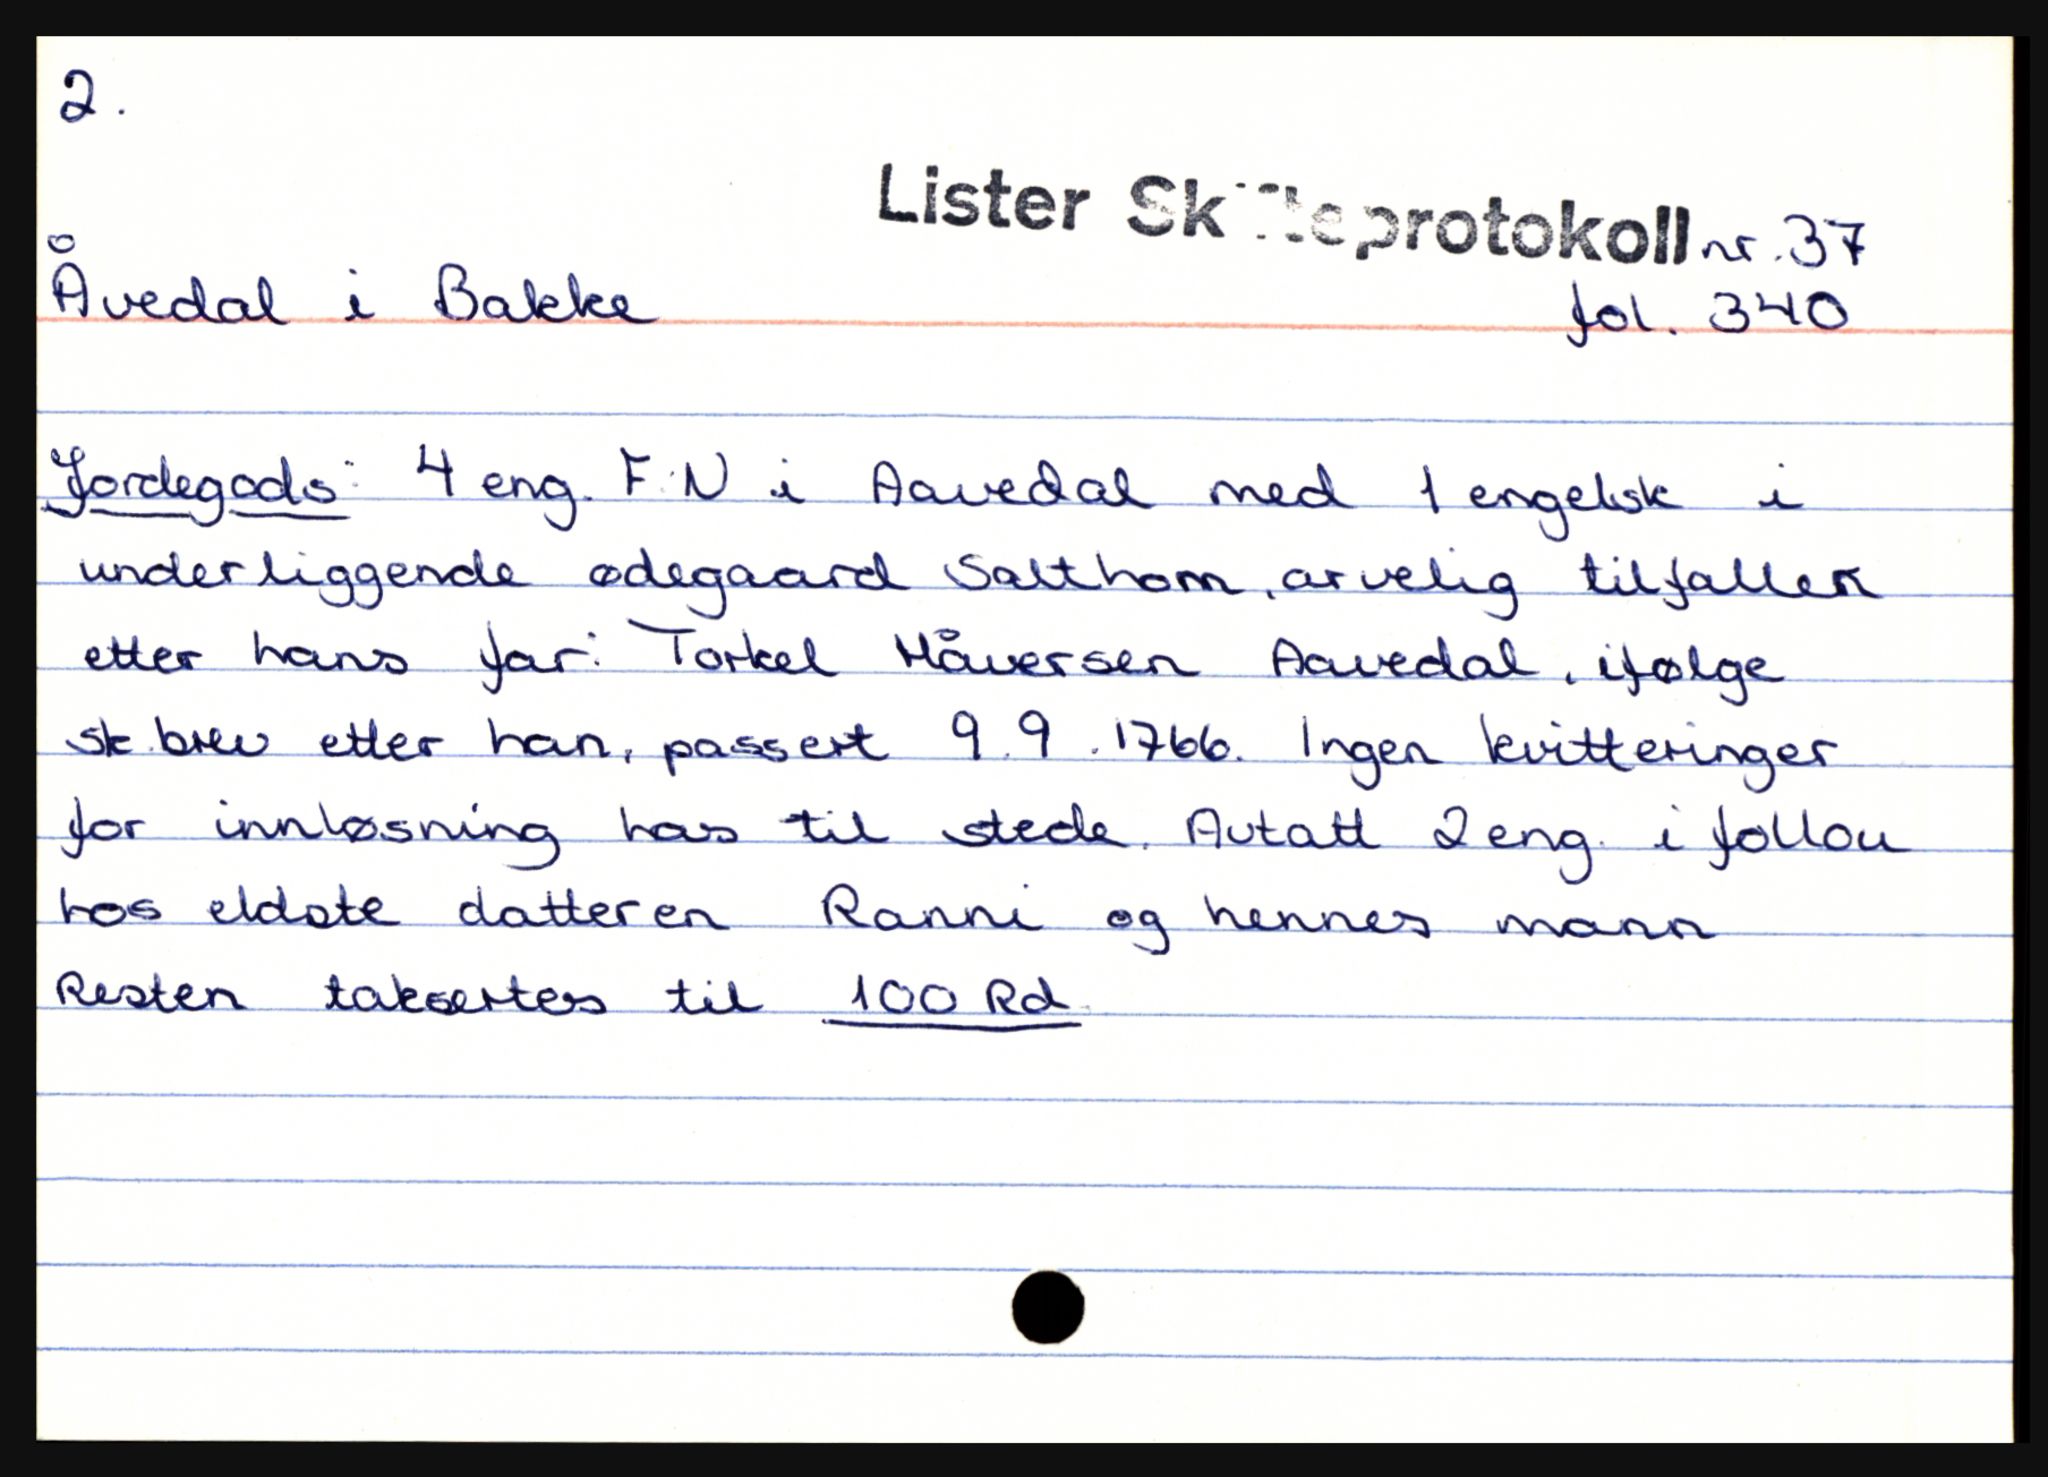 2.
Lister Skifteprotokoll nr. 37
Åvedal i Bakke fol. 340
Jordegods: 4 eng. F.N i Aavedal med 1 engelsk i
underliggende ødegaard Salthom, arvelig tilfallen
etter hans far: Torkel Håversen Aavedal, ifølge
sk.brev etter han, passert 9.9.1766. Ingen kvitteringer
for innløsning has til stede. Avtatt 2 eng. i follou
hos eldste datteren Ranni og hennes mann
Resten taksertes til 100 Rd.